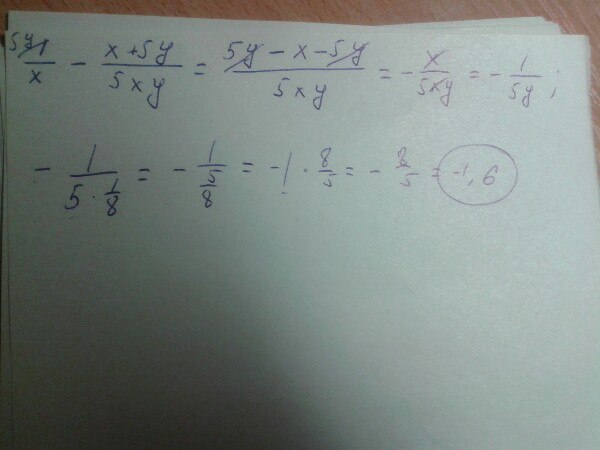 5y/ 1/x - (x+5y)/(5xy) = (5y - x - 5y)/(5xy) = - x/(5xy) = - 1/(5y) ;
- 1/(5 · 1/8) = - 1/(5/8) = -1 · 8/5 = - 8/5 = -1,6